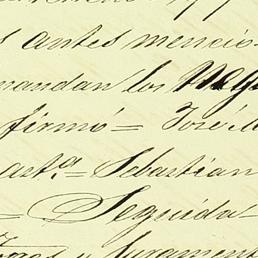 s antes mencio
mandan los
firmó = José M
art.ª = Sebastian
= Seguida
y Juramento